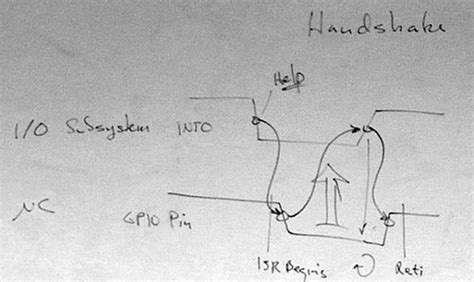 Handshake
Help
I/O Subsystem INT0
μC GPIO Pin
ISR Begins Reti